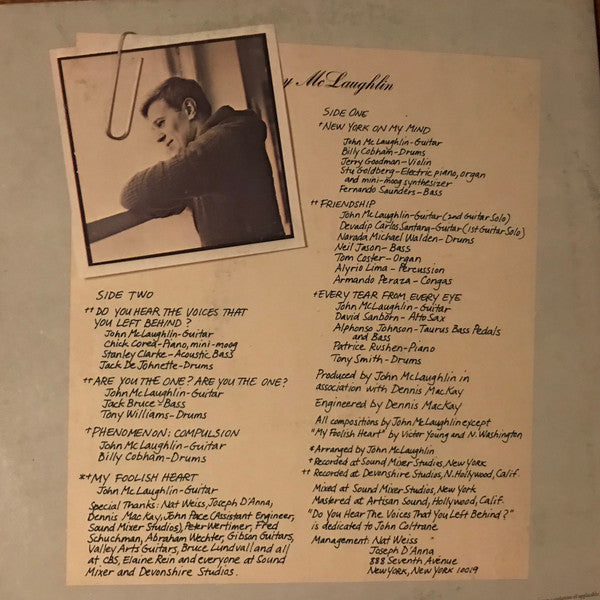 y McLaughlin
SIDE ONE
†NEW YORK ON MY MIND
John McLaughlin-Guitar
Billy Cobham-Drums
Jerry Goodman-Violin
Stu Goldberg-Electric piano, organ
and mini-moog synthesizer
Fernando Saunders-Bass
††FRIENDSHIP
John McLaughlin-Guitar (2nd Guitar Solo)
Devadip Carlos Santana-Guitar (1st Guitar Solo)
Narada Michael Walden-Drums
Neil Jason-Bass
Tom Coster-Organ
Alyrio Lima-Percussion
Armando Peraza-Congas
†EVERY TEAR FROM EVERY EYE
John McLaughlin-Guitar
David Sanborn-Alto Sax
Alphonso Johnson-Taurus Bass Pedals
and Bass
Patrice Rushen-Piano
Tony Smith-Drums
Produced by John McLaughlin in
association with Dennis MacKay
Engineered by Dennis MacKay
All compositions by John McLaughlin except
"My Foolish Heart" by Victor Young and N. Washington
*Arranged by John McLaughlin
†Recorded at Sound Mixer Studios, New York
††Recorded at Devonshire Studios, N. Hollywood, Calif.
Mixed at Sound Mixer Studios, New York
Mastered at Artisan Sound, Hollywood, Calif.
"Do You Hear The Voices That You Left Behind?"
is dedicated to John Coltrane
Management: Nat Weiss
Joseph D'Anna
888 Seventh Avenue
New York, New York 10019
SIDE TWO
††DO YOU HEAR THE VOICES THAT
YOU LEFT BEHIND?
John McLaughlin-Guitar
Chick Corea-Piano, mini-moog
Stanley Clarke-Acoustic Bass
Jack De Johnette-Drums
††ARE YOU THE ONE? ARE YOU THE ONE?
John McLaughlin-Guitar
Jack Bruce-Bass
Tony Williams-Drums
†PHENOMENON: COMPULSION
John McLaughlin-Guitar
Billy Cobham-Drums
*†MY FOOLISH HEART
John McLaughlin-Guitar
Special Thanks: Nat Weiss, Joseph D'Anna,
Dennis MacKay, John Pace (Assistant Engineer,
Sound Mixer Studios), Peter Wertimer, Fred
Schuchman, Abraham Wechter, Gibson Guitars,
Valley Arts Guitars, Bruce Lundvall and all
at CBS, Elaine Rein and everyone at Sound
Mixer and Devonshire Studios.